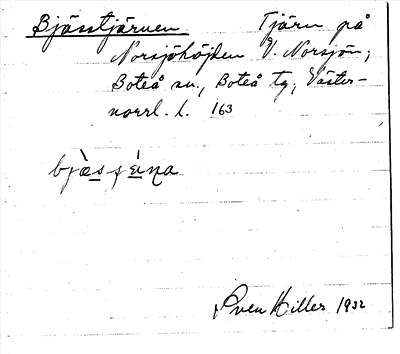 Bjässtjärnen Tjärn på
Norsjöhöjden V. Norsjön,
Boteå sn., Boteå tg, Väster-
norrl. l. 163
Sven Hiller 1932